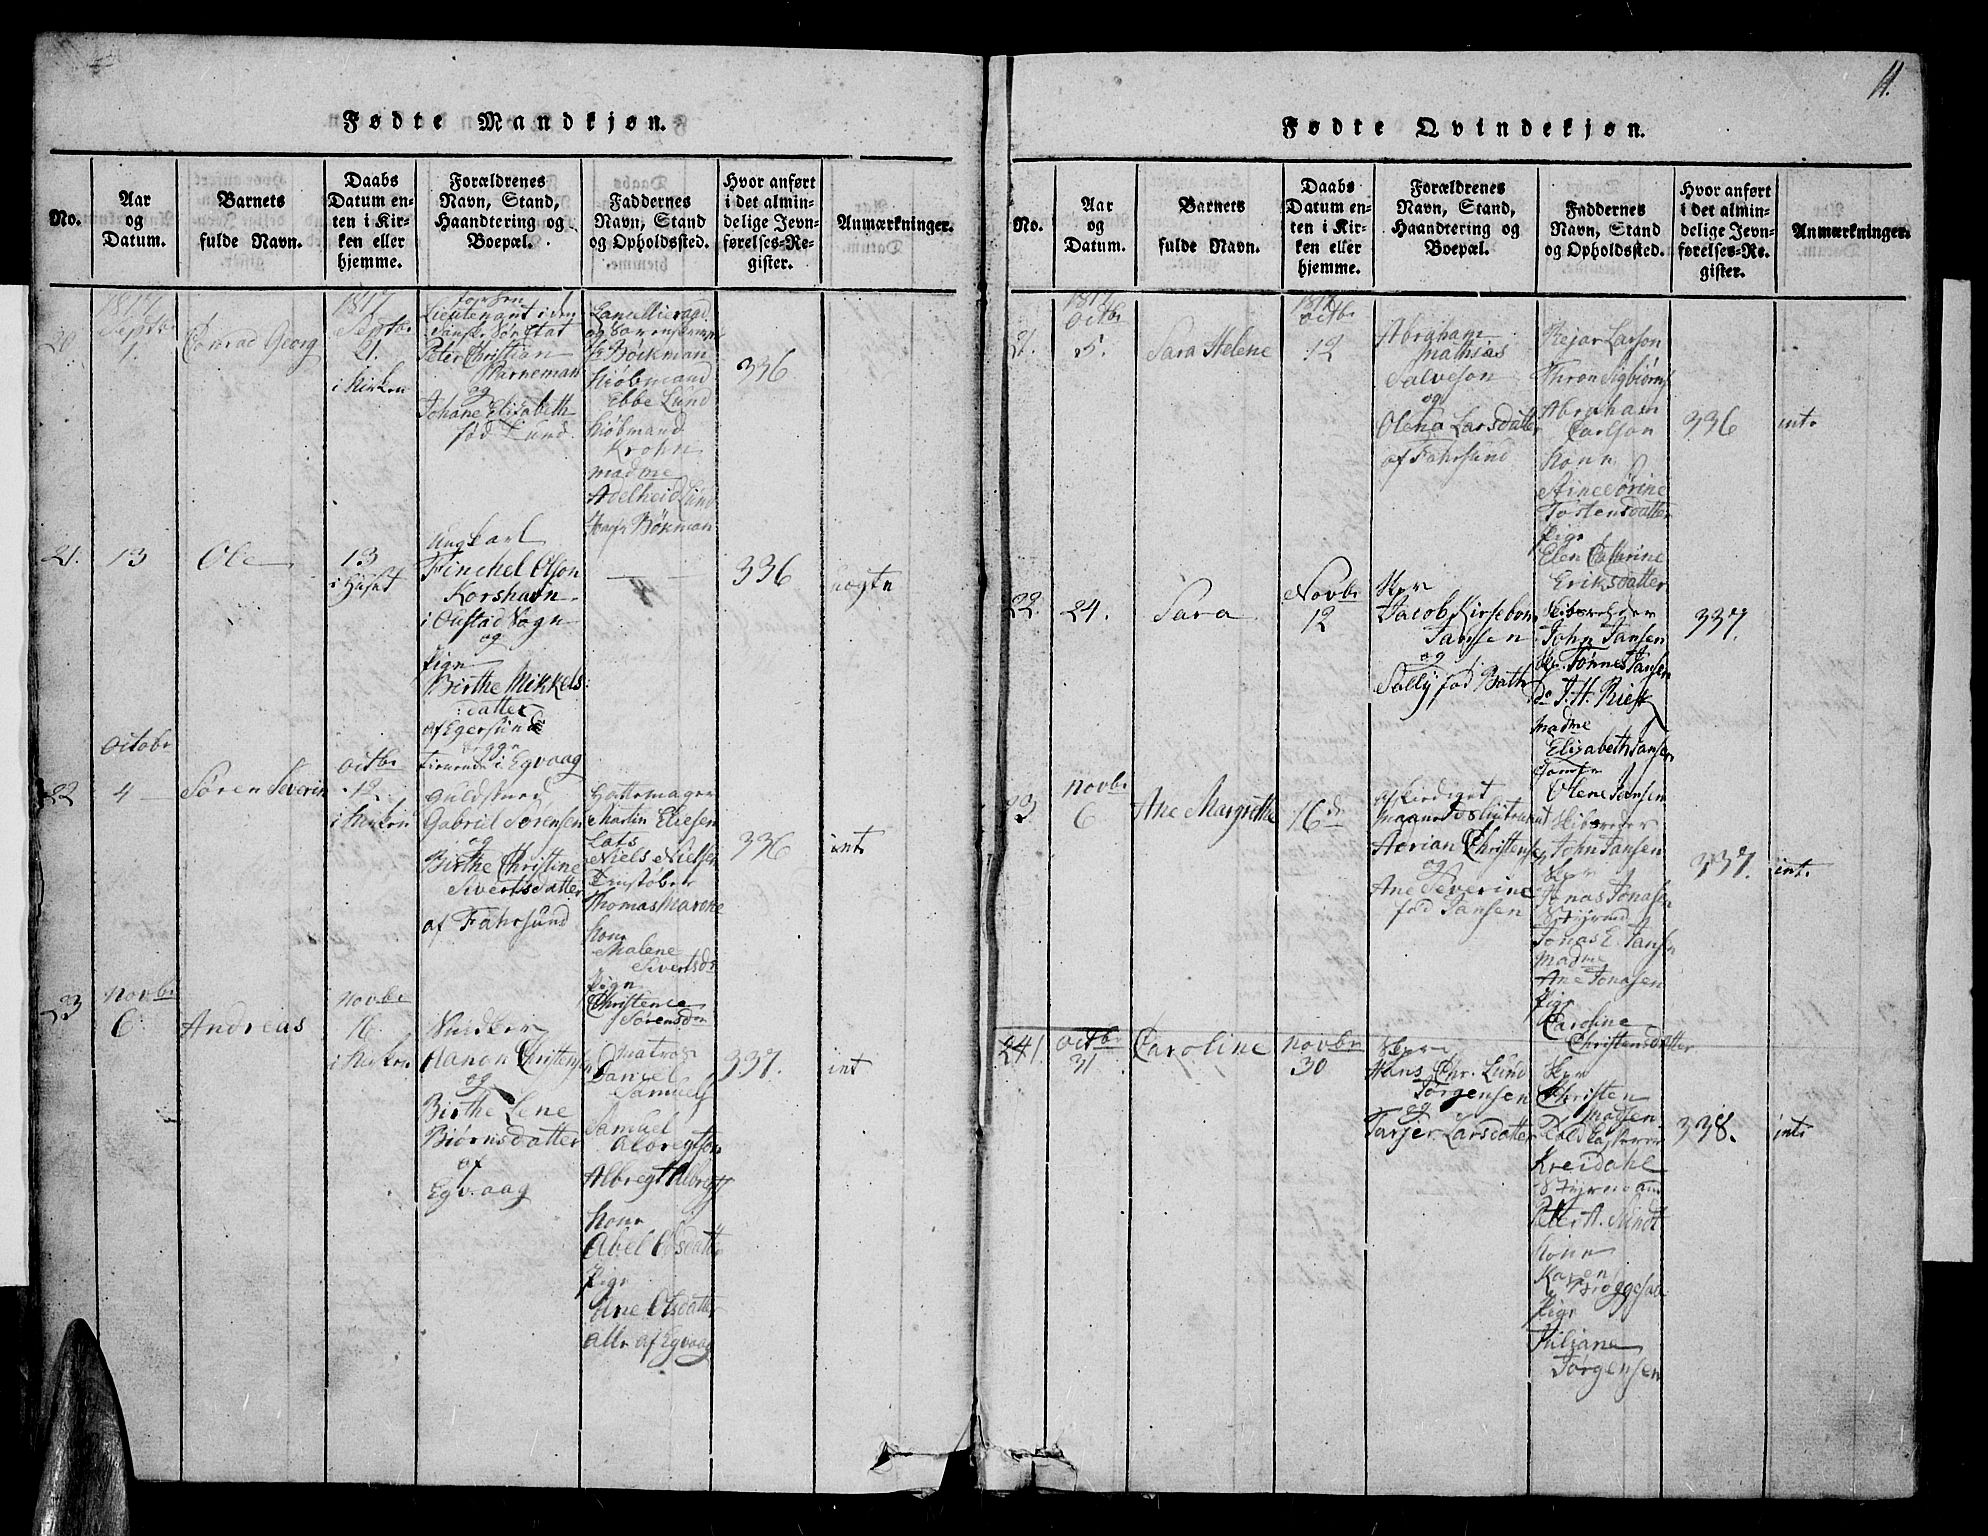 Fødte Mandkjøn.
No.
Aar
og
Datum.
Barnets
fulde Navn.
Daabs
Datum en-
ten i Kir-
ken eller
hjemme.
Forældrenes
Navn, Stand,
Haandtering og
Boepæl.
Faddernes
Navn, Stand
og Opholdssted.
Hvor anført
i det almin-
delige Jevn-
førelses-Re-
gister.
Anmærkninger.
1817
Septbr
20
1.
Conrad Georg
1817
Septbr
21.
i Kirken
Lieutenant i den
Peter Christian
Warneman
og
Johane Elisabeth
fød Lund
Bøckman
Kiøbmand
Ebbe Lund
Kiøbmand
Krohn
madme
Adelheid Lund
Bøkman
336
21.
13
Ole
13
i Huset
Ungkarl
Finchel Olson
Korshavn
i Sogn
og
Pige
Birthe Mikkels:
:datter
af Egersund
i Egvaag
336
uægte
October
22
4
Søren Severin
octbr
12
i Kirken
Guldsmed
Gabriel Sørensen
og
Birthe Christine
Sivertsdatter
af Fahrsund
Hattemager
Martin Eliesen
Lots
Niels Nielsen
Thomas
Kone
Malene
Sivertsdr
Pige
Christence
Sørensdr
336
int
Novbr
23
6
Andreas
novbr
16
i Kirken
Hanok Christensen
og
Birthe Lene
Biørnsdatter
af
Egvaag
Matros
Daniel
Samuels
Samuel
Albregtson
Albregt Albregts
Kone
Abel
Pige
Ane Olsdatter
alle af Egvaag
337.
int
11.
Fødte Qvindekjøn.
No.
Aar
og
Datum.
Barnets
fulde Navn.
Daabs
Datum en-
ten i Kir-
ken eller
hjemme.
Forældrenes
Navn, Stand,
Haandtering og
Boepæl.
Faddernes
Navn, Stand
og Opholdssted.
Hvor anført
i det almin-
delige Jevn-
førelses-Re-
gister.
Anmærkninger.
1817
Octbr
21.
5.
Sara Helene
1817
octbr
12
Abraham
Mathias
Salveson
og
Olena Larsdatter
af Fahrsund
Rejar Larson
Thron Sigbiørns
Abraham
Carlson
Kone
Ane Sørine
Tostensdatter
Pige
Elen Cathrine
Eriksdatter
336
int
22.
24.
Sara
Novbr
12
Skpr
Jacob Kirsebom
Jansen
og
Sally fød Bath
Skibsreder
John Jansen
Tønnes Jansen
Do J. H. Rieck
Madme
Elizabeth Jansen
Jomfr
Olene Jansen
337.
Novbr
23
6
Ane Margrethe
16de
Adrian Christensen
og
Ane Severine
fød Jansen
Skibsreder
John Jansen
Skpr
Jonas Jonasen
Styrmd
Jonas E. Jansen
Madme
Ane Jonasen
Pige
Caroline
Christensdatter
337.
int.
24.
octbr
31
Caroline
novbr
30
Skpr
Hans Chr. Lund
Jørgensen
og
Tarjer Larsdatter
Skpr
Christen
Madsen
Toldkasserer
Kreidahl
Styrmand
Peter A. Sundt
Kone
Karen
Pige
Juliane
Jørgensen
338.
int